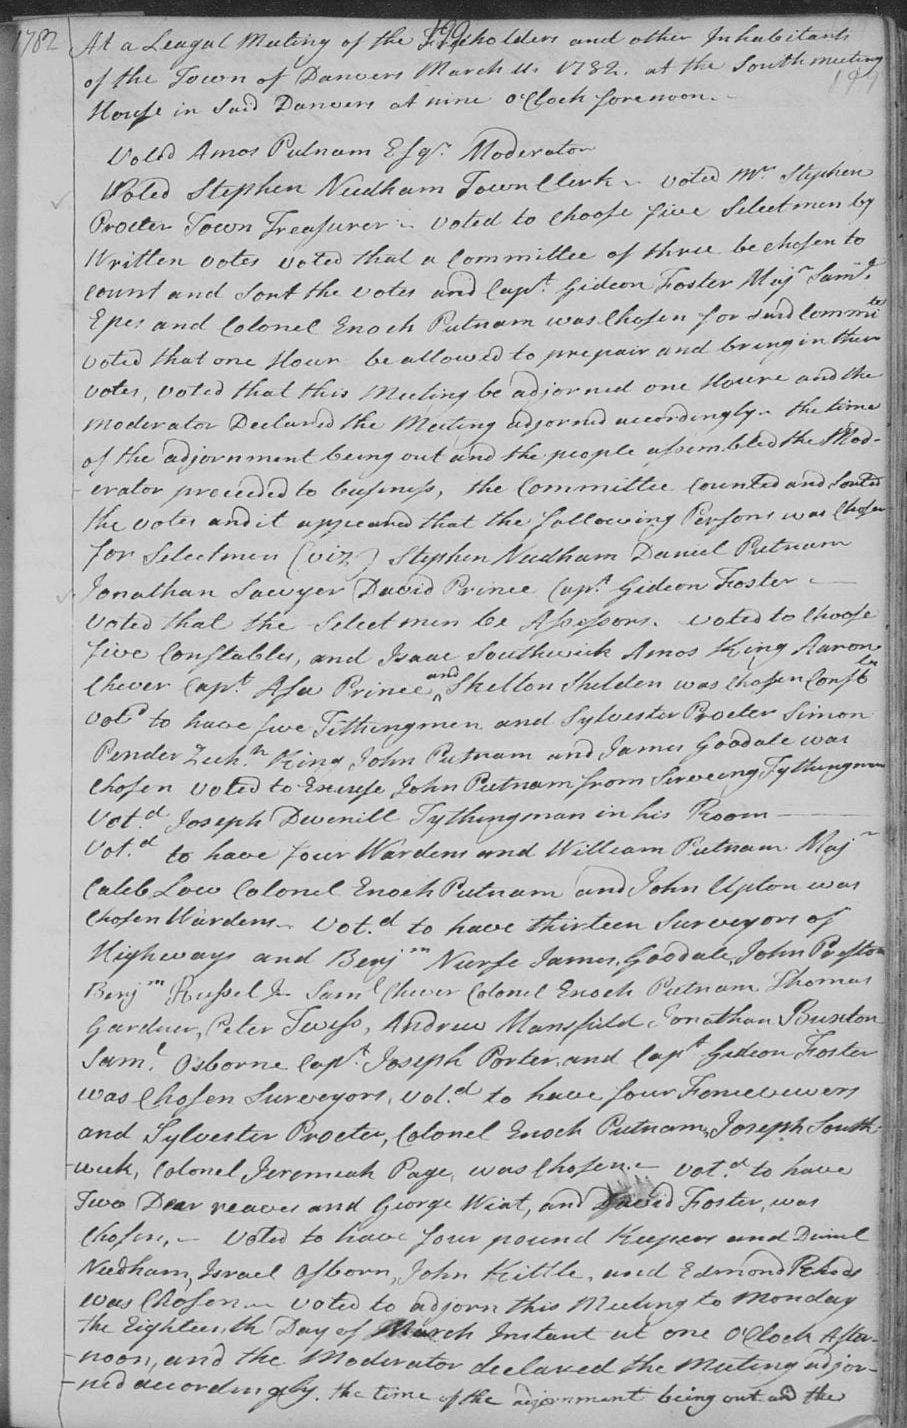 1782
199
194
At a Leagal Meeting of the Freeholders and other Inhabitants
of the Town of Danvers March 11. 1782. at the South meeting
House in Said Danvers at nine o'Cloch forenoon.
Voted Amos Putnam Esqr. Moderator
Voted Stephen Needham Town Clerk - voted Mr Stephen
Procter Town Treasurer - voted to Choose five Select men by
Written votes voted that a Committee of three be chosen to
count and Sort the votes and Capt. Gideon Foster Majr Saml.
Epes and Colonel Enoch Putnam was Chosen for said Committe
voted that one Hour be allowed to prepair and bring in their
votes, voted that this Meeting be adjorned one Houre and the
moderator Declared the Meeting adjorned accordingly - the time
of the adjornment being out and the people assembled the Mod-
-erator proceeded to business, the Committee Counted and Sorted
the votes and it appeared that the following Persons was Chosen
for Selectmen (viz) Stephen Needham Daniel Putnam
Jonathan Sawyer David Prince Capt. Gideon Foster -
voted that the Selectmen be Assessors. voted to Choose
five Constables, and Isaac Southwick Amos King Aaron
Chever Capt. Asa Prince and Skelton Shelden was Chosen Constbls
Votd to have five Tithingmen and Sylvester Procter Simon
Pinder Zechh. King John Putnam and James Goodale was
Chosen voted to Excuse John Putnam from Serveing Tythingman
Vot.d Joseph Dwinill Tythingman in his Room
Vot.d to have four Wardens and William Putnam Majr
Caleb Low Colonel Enoch Putnam and John Upton was
Chosen Wardens - Vot.d to have thirteen Surveyors of
Highways and Benjmn Nurse James Goodale, John Preston
Benjmn Russel Jr Saml Chever Colonel Enoch Putnam Thomas
Gardner, Peter Twiss, Andrew Mansfield Jonathan Buxton
Saml. Osborne Capt. Joseph Porter, and Capt Gideon Foster
was Chosen Surveyors, vot.d to have four Fencevewers
and Sylvester Procter, Colonel Enoch Putnam, Joseph South-
-week, Colonel Jeremiah Page, was Chosen. - vot.d to have
Two Dear reaves and George Wiat, and David Foster, was
Chosen, - Voted to have four pound Keepers and Daniel
Needham, Israel Osborn, John Kittle, and Edmond
was Chosen - voted to adjorn this Meeting to Monday
the Eighteenth Day of March Instant at one o'Cloch After-
-noon, and the Moderator declared the Meeting adjor-
-ned accordingly. the time of the adjornment being out and the